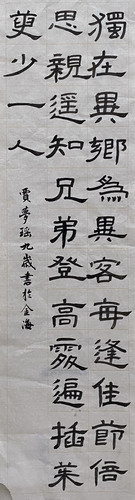 獨在異鄉為異客每逢佳節倍
思親遥知兄弟登高處遍插茱
萸少一人
賈夢瑶九歲書於金海